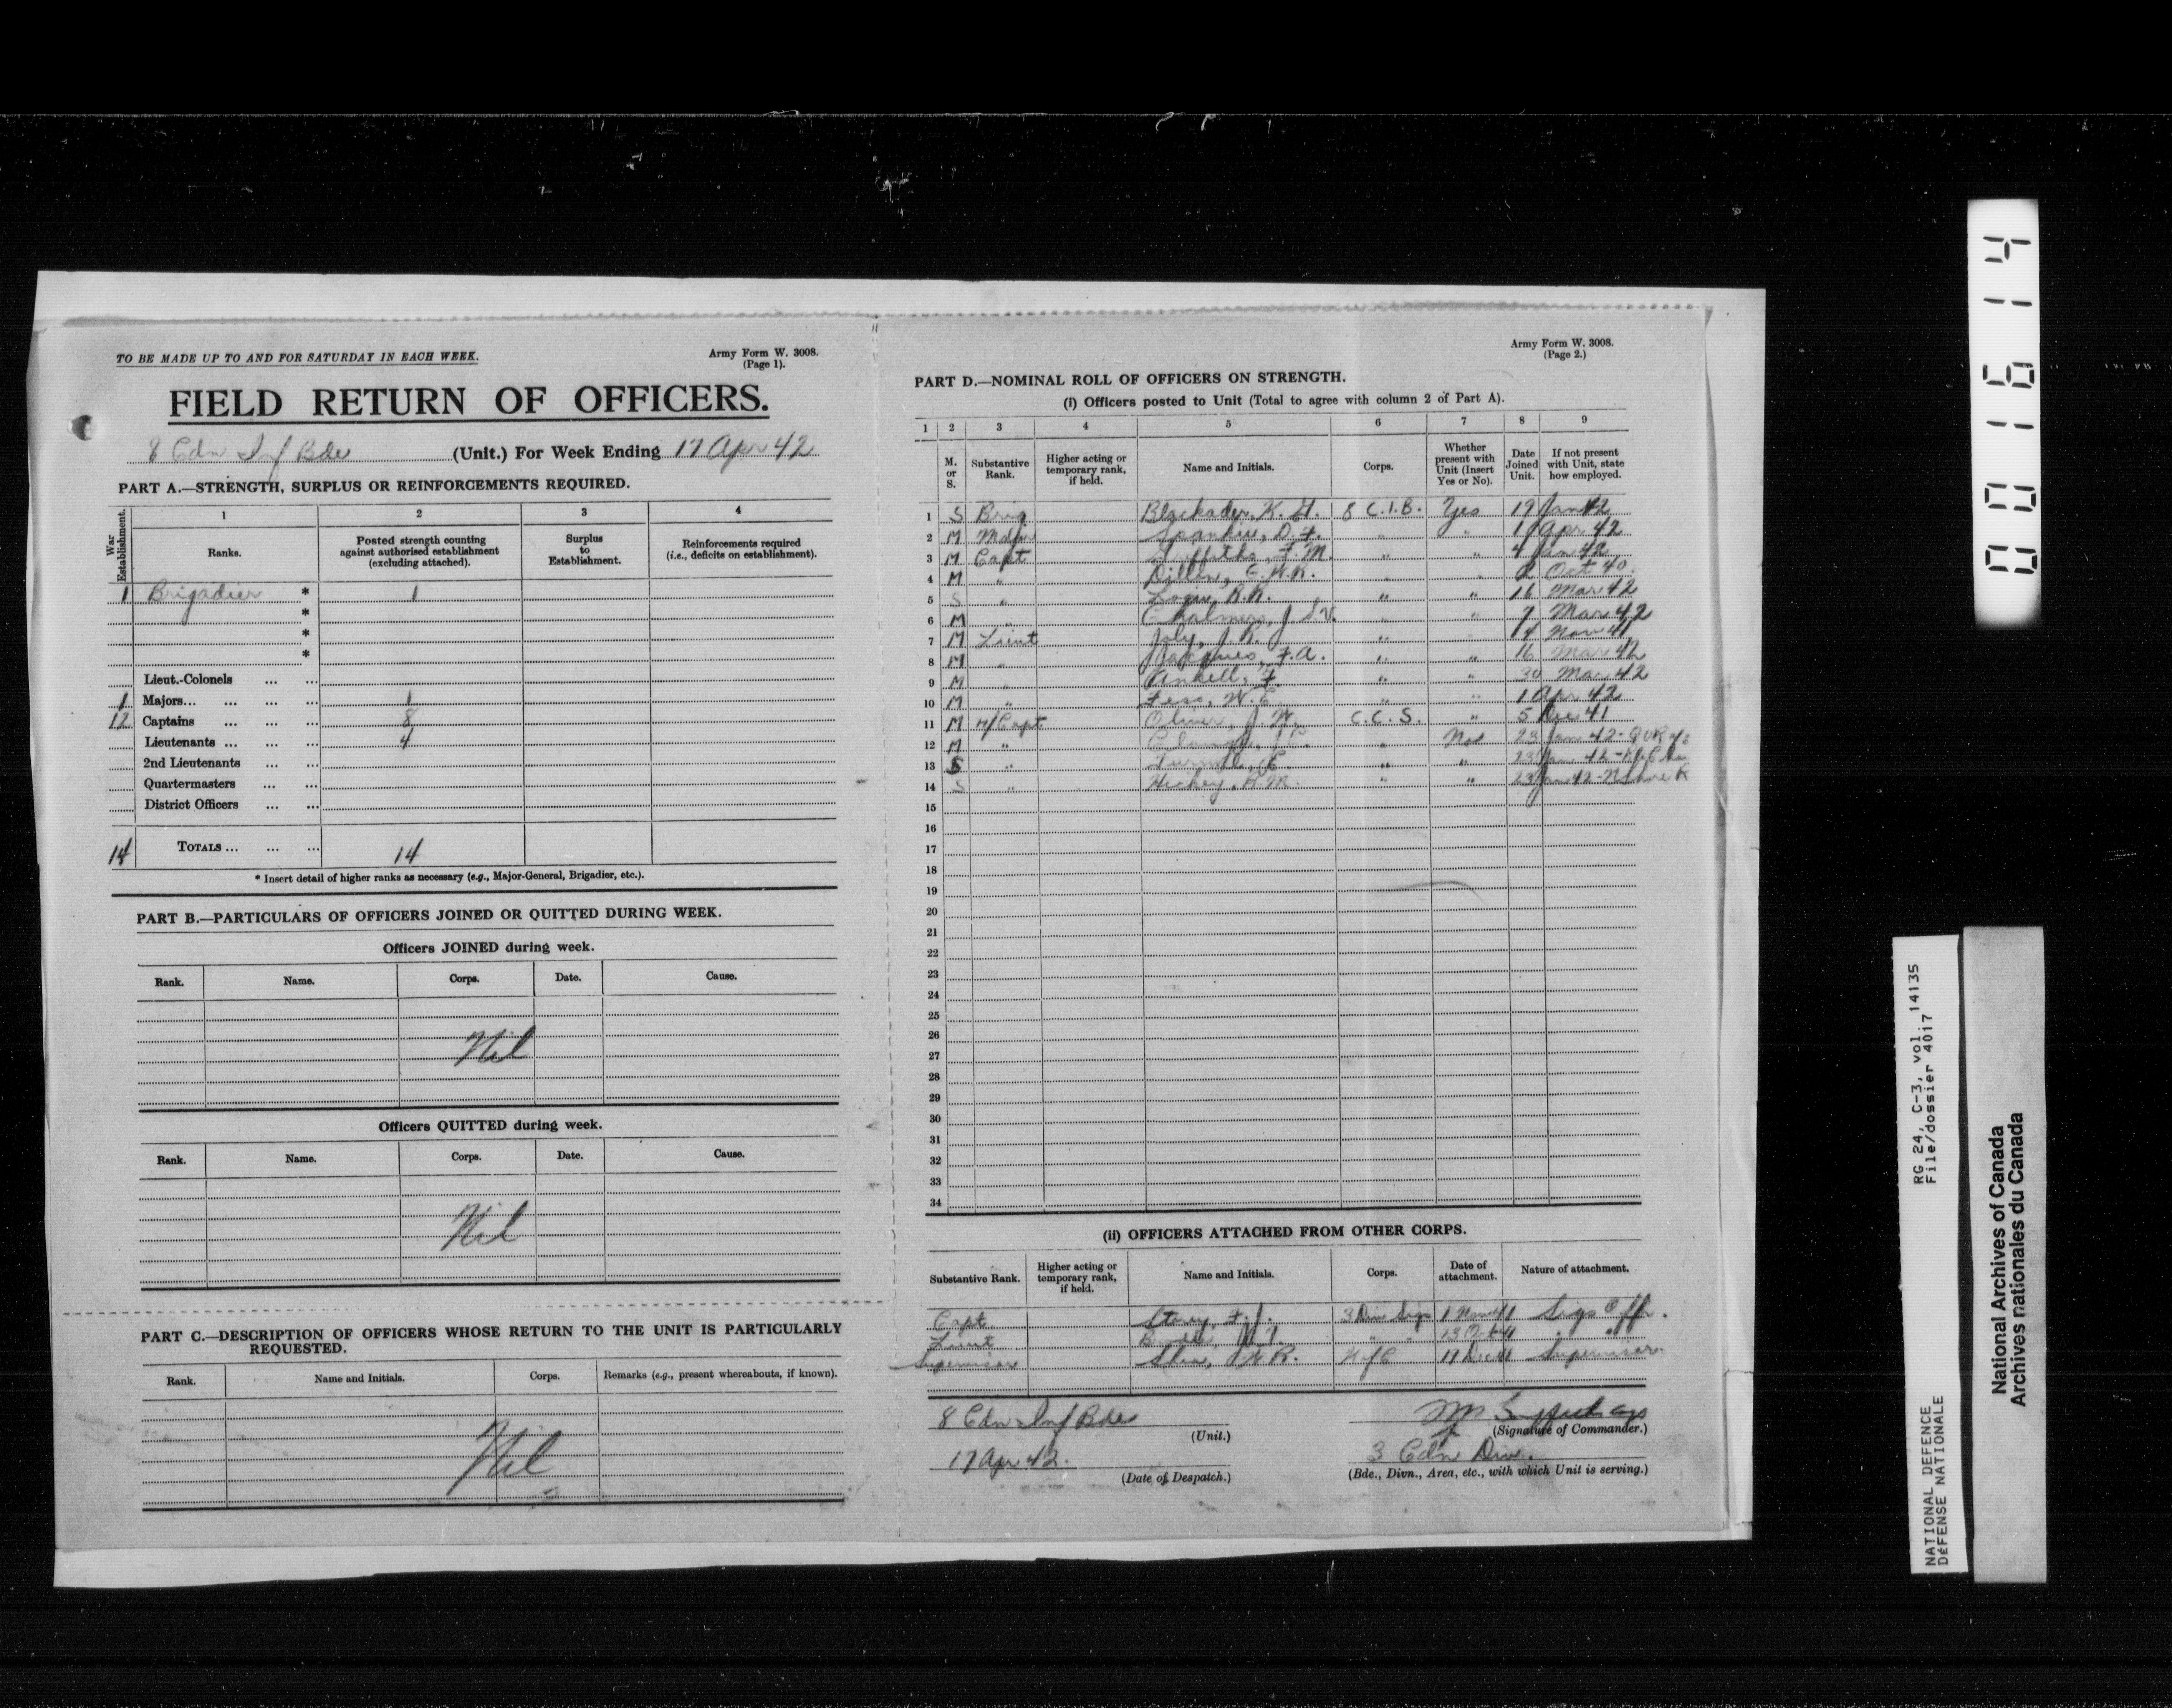 TO BE MADE UP TO AND FOR SATURDAY IN EACH WEEK.
Army Form W. 3008.
(Page 1).
FIELD RETURN OF OFFICERS.
8 Cdn Inf Bde (Unit.) For Week Ending 17 Apr 42
PART A.—STRENGTH, SURPLUS OR REINFORCEMENTS REQUIRED.
War Establishment.
1 2 3 4
Ranks.
Posted strength counting against authorised establishment (excluding attached).
Surplus to Establishment.
Reinforcements required (i.e., deficits on establishment).
1 Brigadier * 1
*
*
*
Lieut.-Colonels ... ...
1 Majors... ... ... ... 1
12 Captains ... ... ... 8
Lieutenants ... ... ... 4
2nd Lieutenants ... ...
Quartermasters ... ...
District Officers ... ...
14 TOTALS ... ... ... 14
* Insert detail of higher ranks as necessary (e.g., Major-General, Brigadier, etc.).
PART B.—PARTICULARS OF OFFICERS JOINED OR QUITTED DURING WEEK.
Officers JOINED during week.
Rank. Name. Corps. Date. Cause.
Nil
Officers QUITTED during week.
Rank. Name. Corps. Date. Cause.
Nil
PART C.—DESCRIPTION OF OFFICERS WHOSE RETURN TO THE UNIT IS PARTICULARLY
REQUESTED.
Rank. Name and Initials. Corps. Remarks (e.g., present whereabouts, if known).
Nil
Army Form W. 3008.
(Page 2.)
PART D.—NOMINAL ROLL OF OFFICERS ON STRENGTH.
(i) Officers posted to Unit (Total to agree with column 2 of Part A).
1 2 3 4 5 6 7 8 9
M. or S.
Substantive Rank.
Higher acting or temporary rank, if held.
Name and Initials.
Corps.
Whether present with Unit (Insert Yes or No).
Date Joined Unit.
If not present with Unit, state how employed.
1 S Brig Blackader, K. G. 8 C.I.B. Yes 19 Jan 42
2 M Major D. F. " " 1 Apr 42
3 M Capt Griffiths, F. M. " " 4 Jan 42
4 M " Dillon, " " 2 Oct 40
5 S " Logie, R.R. " " 16 Mar 42
6 M " Chalmers, J " 7 Mar 42
7 M Lieut Joly, J. R. " 14 Nov 41
8 M " F.A. " " 16 Mar 42
9 M " F. " " 30 Mar 42
10 M " " " 1 Apr 42
11 M H/Capt J. W. C.C.S. " 5 Dec 41
12 M " " 23 Jan 42 -
13 S " " " 23 Jan 42 -
14 S " Hickey, R.M. " " 23 Jan 42 - N Shore R
15
16
17
18
19
20
21
22
23
24
25
26
27
28
29
30
31
32
33
34
(ii) OFFICERS ATTACHED FROM OTHER CORPS.
Substantive Rank. Higher acting or temporary rank, if held. Name and Initials. Corps. Date of attachment. Nature of attachment.
Capt Story, F. J. 3 Div Sigs 1 Sigs Offr.
Lieut " " " "
Supervisor 11 Dec 41 Supervisor
8 Cdn Inf Bde
(Unit.)
(Signature of Commander.)
17 Apr 42.
(Date of Despatch.)
3 Cdn Div.
(Bde., Divn., Area, etc., with which Unit is serving.)
001614
RG 24, C-3, vol. 14135
File/dossier 4017
NATIONAL DEFENCE
DÉFENSE NATIONALE
National Archives of Canada
Archives nationales du Canada